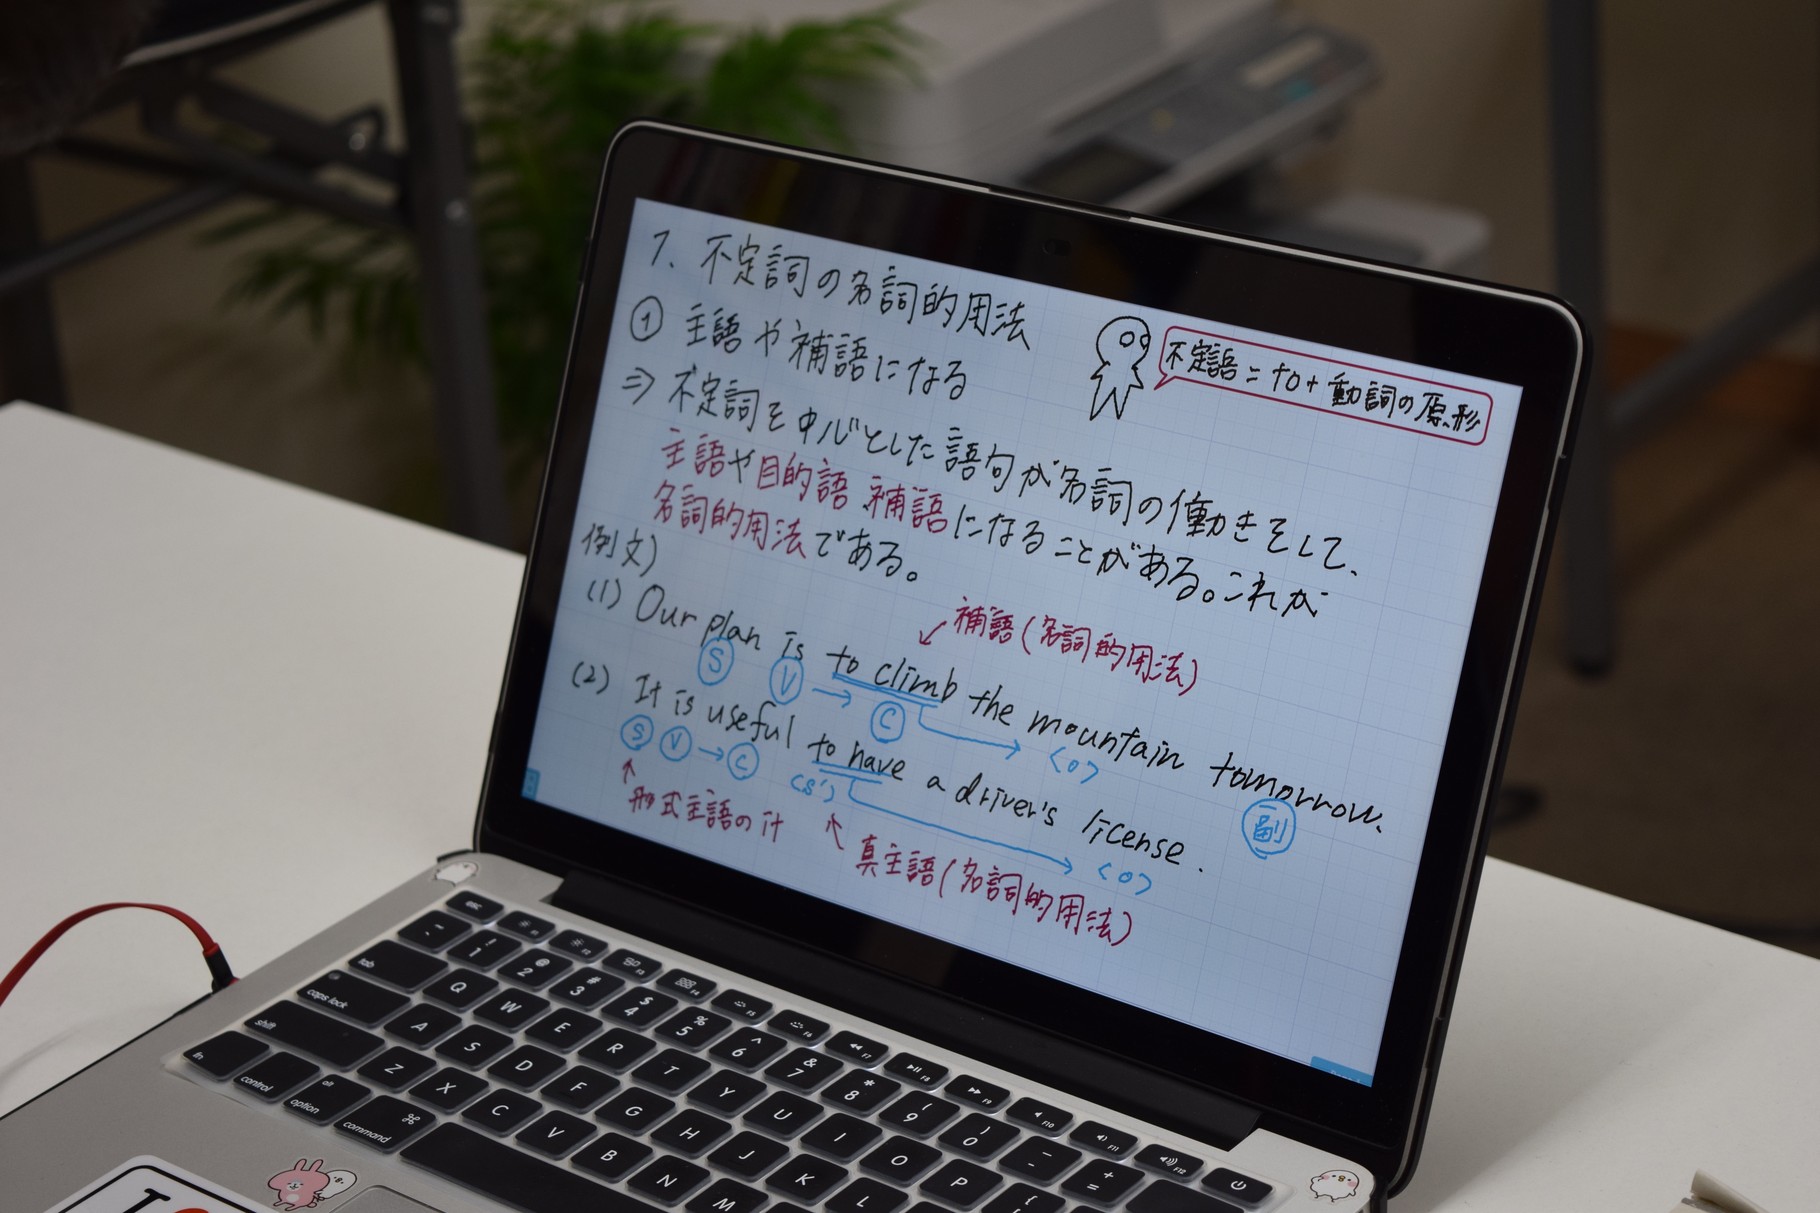 1. 不定詞の名詞的用法
① 主語や補語になる
不定語=to+動詞の原形
⇒ 不定詞を中心とした語句が名詞の働きをして、
主語や目的語、補語になることがある。これが
名詞的用法である。
例文)
(1) Our plan is to climb the mountain tomorrow.
補語(名詞的用法)
S V → C → <o> 副
(2) It is useful to have a driver's license.
S V → C (S') → <o>
形式主語のit
真主語(名詞的用法)
esc F1 F2 F3 F4 F5 F6 F7 F8 F9 F10 F11 F12
~ ! 1 @ 2 # 3 $ 4 % 5 ^ 6 & 7 * 8 ( 9 ) 0 - + =
tab Q W E R T Y U I O P {
caps lock A S D F G H J K L
shift Z X C V B N M
fn control alt option ⌘ command
I